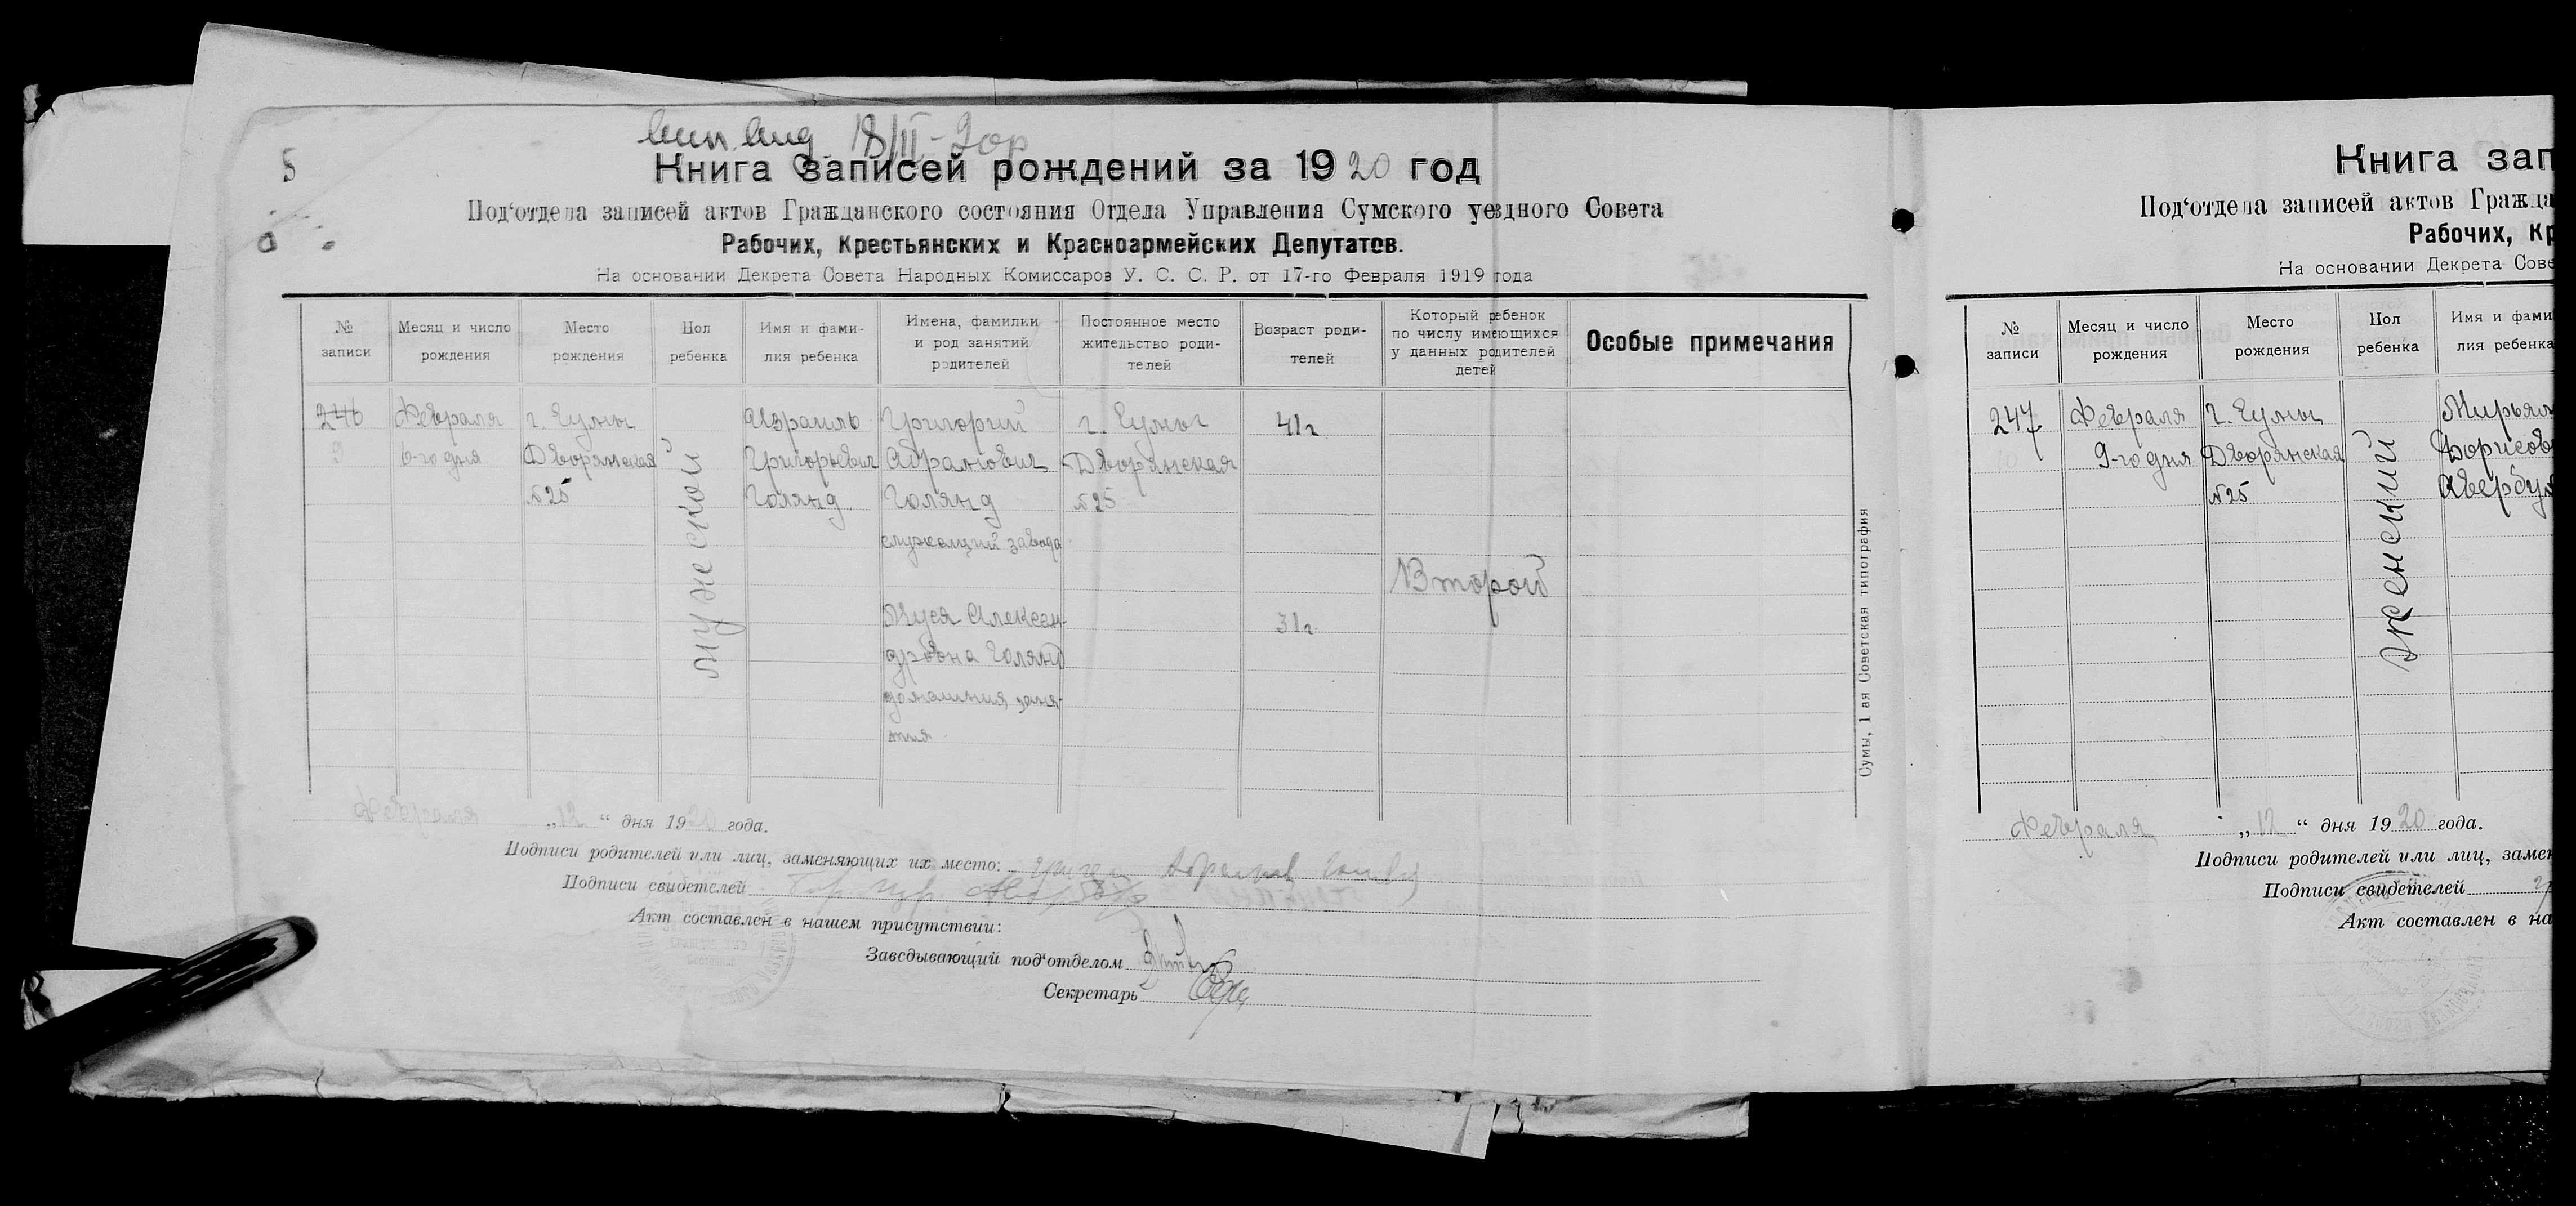 5
18/II-20г
Книга записей рождений за 1920 год
Под‘отдела записей актов Гражданского состояния Отдела Управления Сумского уездного Совета
Рабочих, Крестьянских и Красноармейских Депутатов.
На основании Декрета Совета Народных Комиссаров У. С. С. Р. от 17-го Февраля 1919 года
№ записи
Месяц и число рождения
Место рождения
Пол ребенка
Имя и фами-
лия ребенка
Имена, фамилии
и род занятий
родителей
Постоянное место
жительство роди-
телей
Возраст роди-
телей
Который ребенок
по числу имеющихся
у данных родителей
детей
Особые примечания
246
9
Февраля
6-го дня
г. Сумы
Дворянская
№25
мужеской
Израиль
Григорьевич
Голянд
Григорий
Абрамович
Голянд
служащий завода
Муся Алексан-
дровна Голянд
домашния заня-
тия
г. Сумы
Дворянская
№25
41г
31г.
Второй
Сумы, 1 ая Советская типография
Февраля „12“ дня 1920 года.
Подписи родителей или лиц, заменяющих их место:
Подписи свидетелей
Акт составлен в нашем присутствии:
Заведывающий под‘отделом
Секретарь
Книга зап
Под‘отдела записей актов Гражда
Рабочих, Кр
На основании Декрета Сове
№ записи
Месяц и число рождения
Место рождения
Пол ребенка
Имя и фами
лия ребенка
247
10
Февраля
9-го дня
г. Сумы
Дворянская
№25
женский
Мирьям
Борисов
Авербух
Февраля „12“ дня 1920 года.
Подписи родителей или лиц, замен
Подписи свидетелей
Акт составлен в на